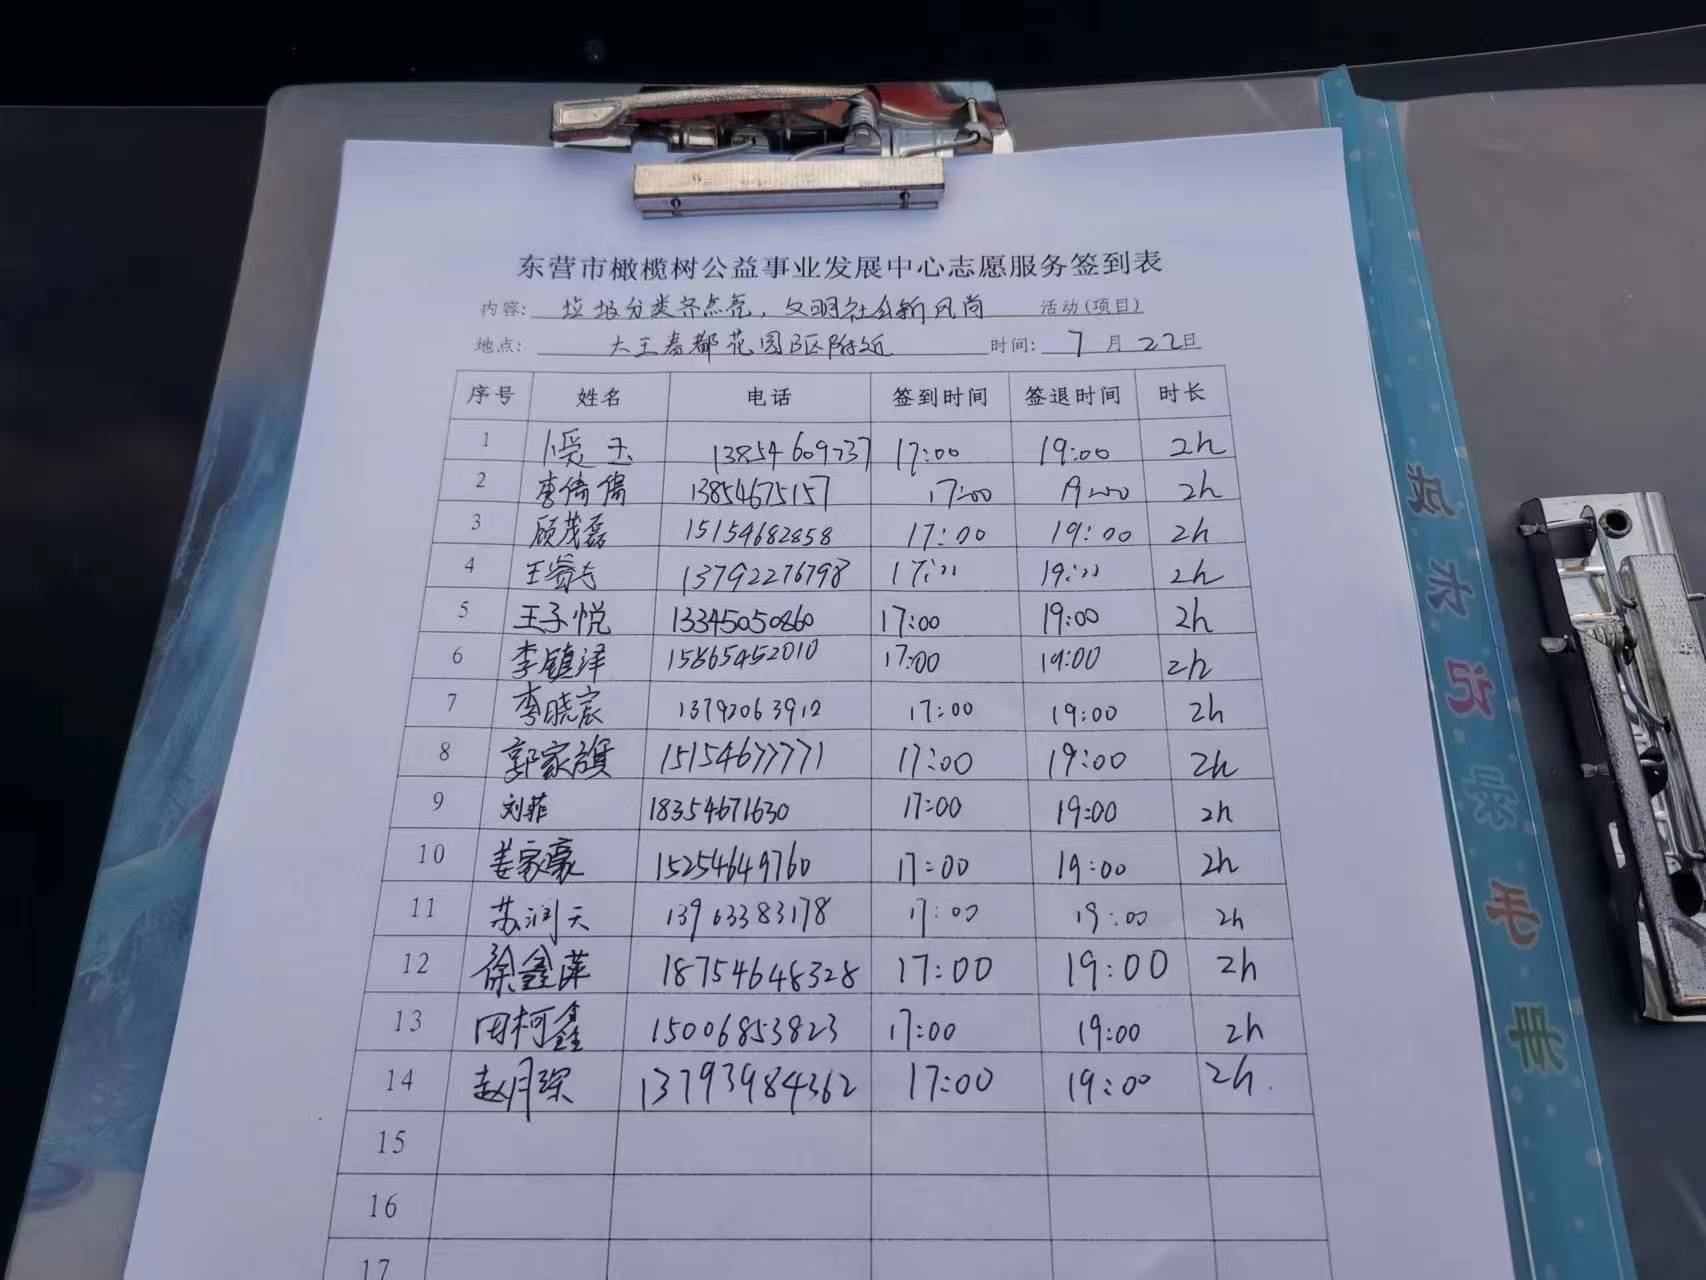 东营市橄榄树公益事业发展中心志愿服务签到表
内容: 垃圾分类齐点亮，文明社会新风尚 活动(项目)
地点: 大王春都花园B区附近 时间: 7月22日
序号 姓名 电话 签到时间 签退时间 时长
1 玉 13854609737 17:00 19:00 2h
2 李倩倩 13854675157 17:00 19:00 2h
3 顾茂磊 15154682858 17:00 19:00 2h
4 13792276798 17:00 19:00 2h
5 王子悦 13345050860 17:00 19:00 2h
6 李镇泽 15865452010 17:00 19:00 2h
7 李晓宸 13792063912 17:00 19:00 2h
8 郭家旗 15154677771 17:00 19:00 2h
9 刘菲 18354671630 17:00 19:00 2h
10 姜家豪 15254649760 17:00 19:00 2h
11 苏润天 13963383178 17:00 19:00 2h
12 徐鑫萍 18754648328 17:00 19:00 2h
13 田柯鑫 15006853823 17:00 19:00 2h
14 赵月琛 13793984362 17:00 19:00 2h.
15
16
17
成长记录手册